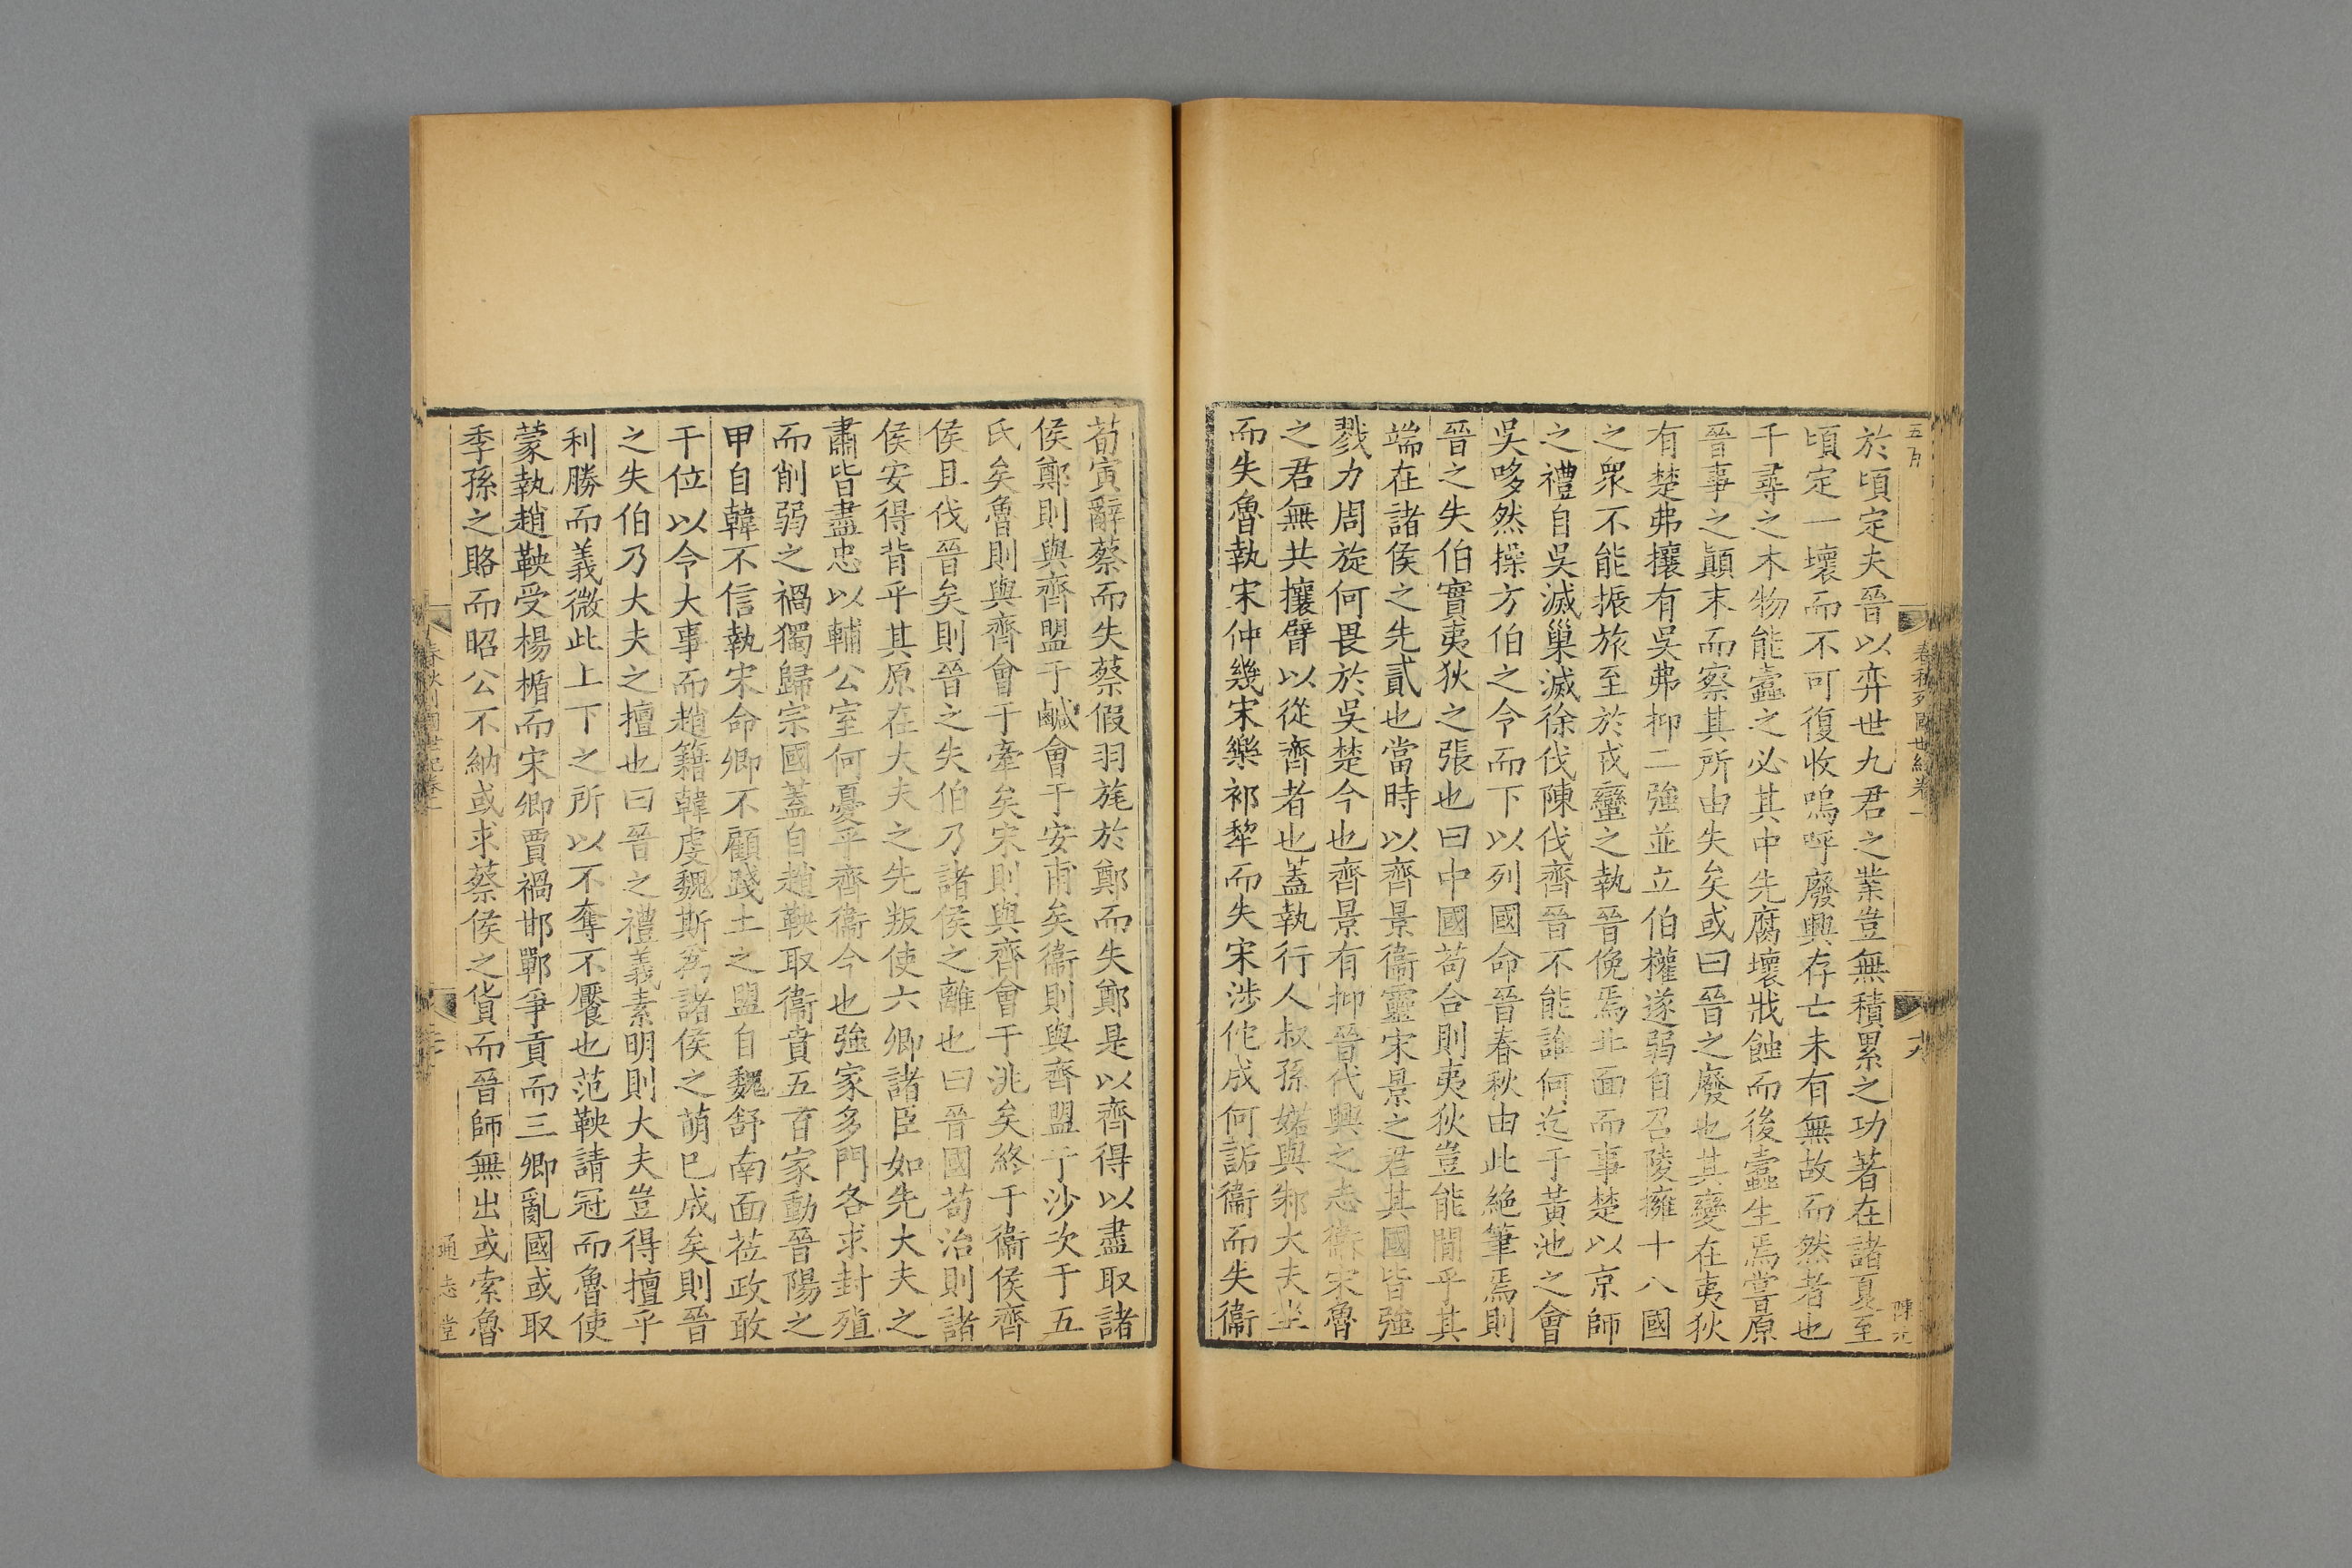 於頃定夫晉以弈世九君之業豈無積累之功著在諸夏至
頃定一壞而不可復收嗚呼廢興存亡未有無故而然者也
千尋之木物能蠹之必其中先腐壞戕蝕而後蠹生焉嘗原
晉事之顚末而察其所由失矣或曰晉之廢也其變在夷狄
有楚弗攘有吳弗抑二強並立伯權遂弱自召陵擁十八國
之衆不能振旅至於戎蠻之執晉俛焉北面而事楚以京師
之禮自吳滅巢滅徐伐陳伐齊晉不能誰何迄于黃池之會
吳哆然操方伯之令而下以列國命晉春秋由此絶筆焉則
晉之失伯實夷狄之張也曰中國苟合則夷狄豈能間乎其
端在諸侯之先貳也當時以齊景衞靈宋景之君其國皆強
戮力周旋何畏於吳楚今也齊景有抑晉代興之志衞宋魯
之君無共攘臂以從齊者也蓋執行人叔孫婼與邾大夫坐
而失魯執宋仲幾宋樂祁犂而失宋涉佗成何詬衞而失衞
春秋列國世紀卷一
陳元
荀寅辭蔡而失蔡假羽旄於鄭而失鄭是以齊得以盡取諸
侯鄭則與齊盟于鹹會于安甫矣衞則與齊盟于沙次于五
氏矣魯則與齊會于牽矣宋則與齊會于洮矣終于衞侯齊
侯且伐晉矣則晉之失伯乃諸侯之離也曰晉國苟治則諸
侯安得背乎其原在大夫之先叛使六卿諸臣如先大夫之
肅皆盡忠以輔公室何憂乎齊衞今也強家多門各求封殖
而削弱之禍獨歸宗國蓋自趙鞅取衞貢五百家動晉陽之
甲自韓不信執宋命卿不顧踐土之盟自魏舒南面莅政敢
干位以令大事而趙籍韓虔魏斯爲諸侯之萌已成矣則晉
之失伯乃大夫之擅也曰晉之禮義素明則大夫豈得擅乎
利勝而義微此上下之所以不奪不饜也范鞅請冠而魯使
蒙執趙鞅受楊楯而宋卿賈禍邯鄲爭貢而三卿亂國或取
季孫之賂而昭公不納或求蔡侯之貨而晉師無出或索魯
春秋列國世紀卷一
通志堂